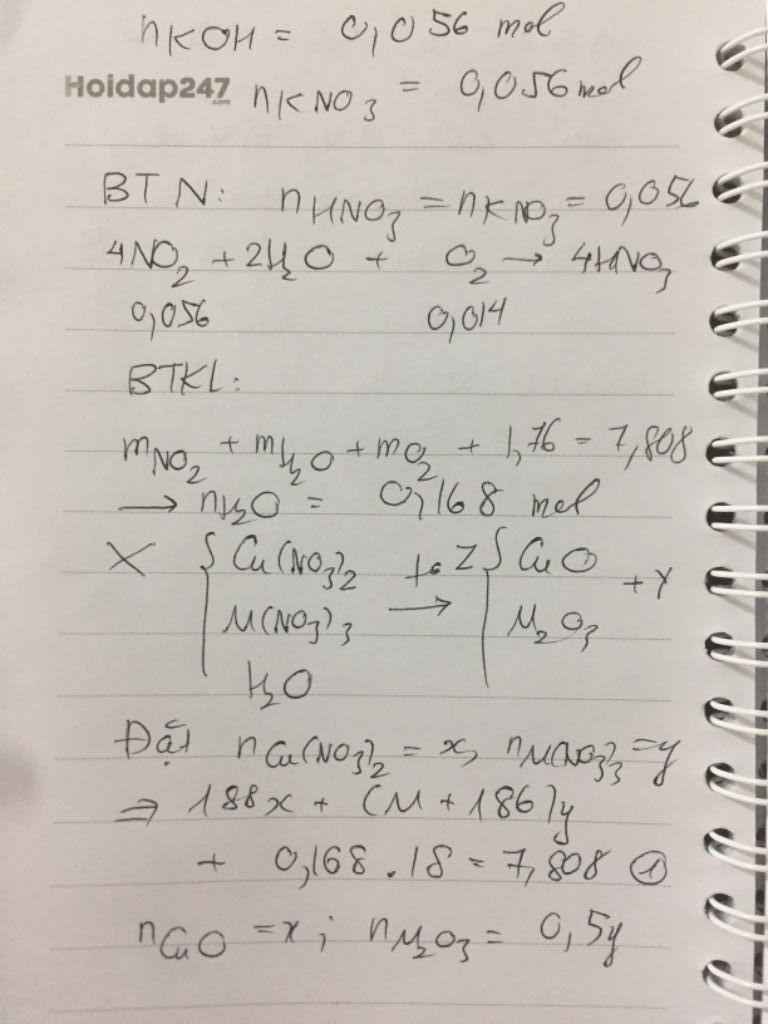 nKOH = 0,056 mol
Hoidap247
.com
nKNO₃ = 0,056 mol
BTN: nHNO₃ = nKNO₃ = 0,056
4NO₂ + 2H₂O + O₂ → 4HNO₃
0,056 0,014
BTKL:
mNO₂ + mH₂O + mO₂ + 1,76 = 7,808
→ nH₂O = 0,168 mol
X { Cu(NO₃)₂ t° → Z { CuO + Y
M(NO₃)₃ M₂O₃
H₂O
Đặt nCu(NO₃)₂ = x, nM(NO₃)₃ = y
⇒ 188x + (M + 186)y
+ 0,168 . 18 = 7,808 ①
nCuO = x; nM₂O₃ = 0,5y